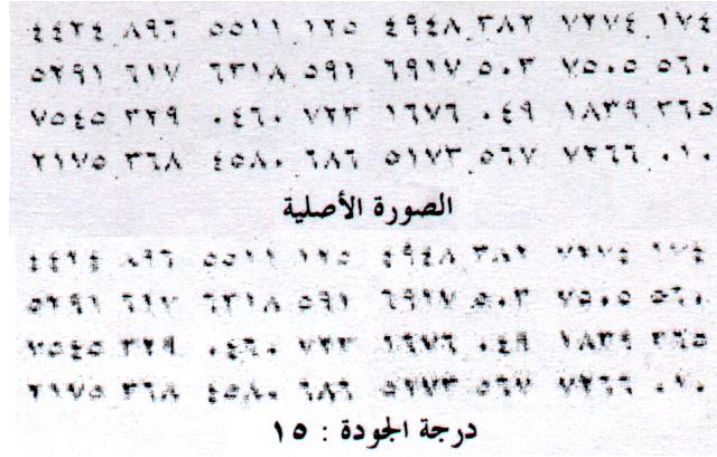 ٤٤٢٤ ٨٩٦ ٥٥١١ ١٢٥ ٤٩٤٨ ٣٨٢ ٧٢٧٤ ١٧٤
٥٢٩١ ٦١٧ ٦٣١٨ ٥٩١ ٦٩١٧ ٥٠٣ ٧٥٠٥ ٥٦٠
٧٥٤٥ ٣٢٩ ٠٤٦٠ ٧٢٣ ١٦٧٦ ٠٤٩ ١٨٣٩ ٣٦٥
٢١٧٥ ٣٦٨ ٤٥٨٠ ٦٨٦ ٥١٧٣ ٥٦٧ ٧٢٦٦ ٠١٠
الصورة الأصلية
٤٤٢٤ ٨٩٦ ٥٥١١ ١٢٥ ٤٩٤٨ ٣٨٢ ٧٢٧٤ ١٧٤
٥٢٩١ ٦١٧ ٦٣١٨ ٥٩١ ٦٩١٧ ٥٠٣ ٧٥٠٥ ٥٦٠
٧٥٤٥ ٣٢٩ ٠٤٦٠ ٧٢٣ ١٦٧٦ ٠٤٩ ١٨٣٩ ٣٦٥
٢١٧٥ ٣٦٨ ٤٥٨٠ ٦٨٦ ٥١٧٣ ٥٦٧ ٧٢٦٦ ٠١٠
درجة الجودة : ١٥